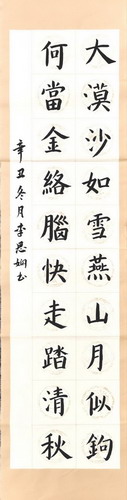 大漠沙如雪燕山月似鉤
何當金絡腦快走踏清秋
辛丑冬月李思姻书